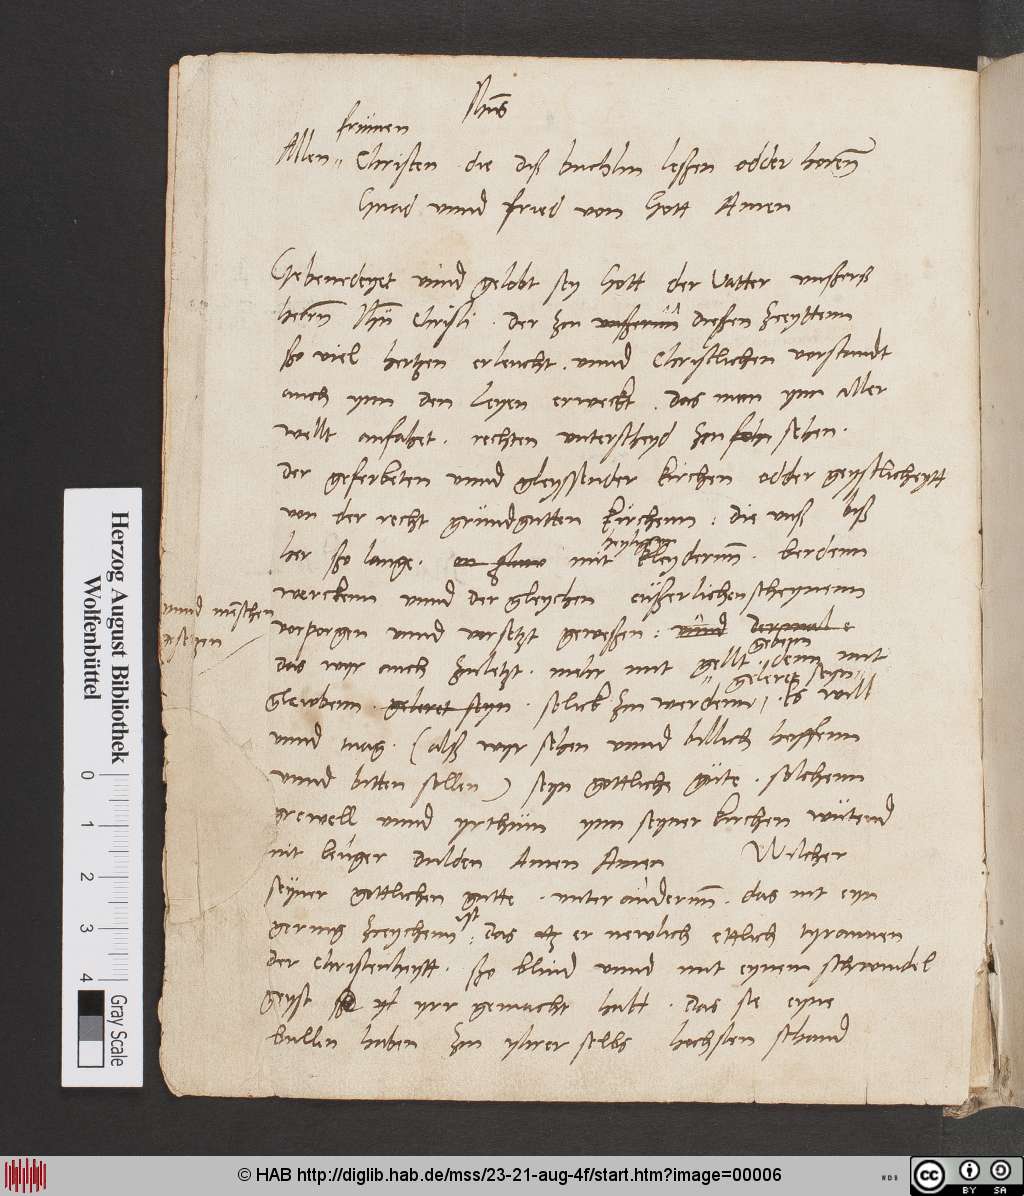 Jhūs
frümen
Allen Christen die diß buchlin leßen odder horenn
Gnad unnd fried von Gott Amen
Gebenedeyet unnd gelobt sey Gott der Vatter unßerß
herrn Jhū Christi . der zu unßernn dießen zceyttenn
sso viel hertzen erleucht . unnd Christlichen vorstandt
auch ynn den Leyen erweckt . das man ynn aller
wellt anfahet . rechten unterscheyd zu sehen .
der geferbeten unnd gleyssender kirchen odder geystlicheytt
von der recht gründgutten kirchenn : die unß biß
her sso lange . mit kleydernn . berdenn
heyligen
werckenn unnd der gleychen eüßerlichen scheynenn
unnd menschen
gesetzen
vorporgen unnd vorsetzt geweßen : unnd
das wyr auch zuletzt . mehr mit gellt denn mit
gebenn
geleret seyn
Glawbenn . geleret seyn . selick zu werdenn . Es will
unnd mag . (alß wyr sehen unnd billich hoffenn
unnd bitten sollen) seyn gottliche güte . solchenn
grewell unnd yrthum ynn seyner kirchen wütend
nit lenger dulden Amen Amen Wilcher
seyner gottlichen gutte . unter andernn . das nit eyn
gering zceychenn ist : das er newlich ettlich tyrannen
der Christenheytt . sso blind unnd mit eynem schwindel
geyst yrr gemacht hatt . das sie eyne
bullen haben zu yhrer selbs hochsten schand
Herzog August Bibliothek
Wolfenbüttel
0 1 2 3 4
Gray Scale
© HAB http://diglib.hab.de/mss/23-21-aug-4f/start.htm?image=00006
WDB
cc BY SA